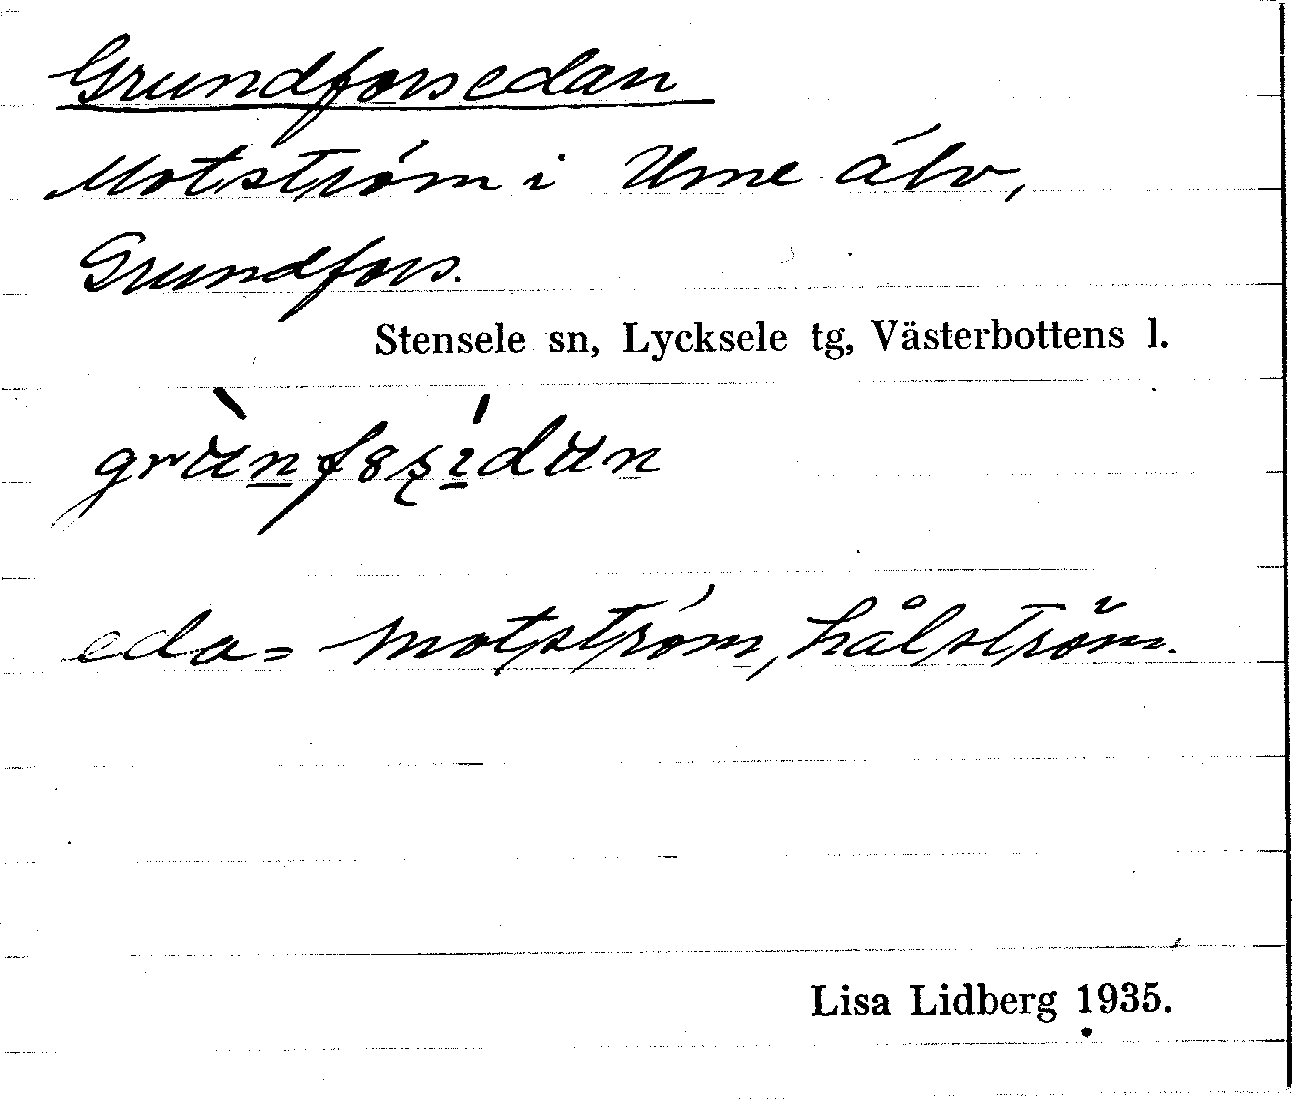 Grundforsedan
Motström i Ume älv,
Grundfors.
Stensele sn, Lycksele tg, Västerbottens l.
eda = motström, hålström.
Lisa Lidberg 1935.